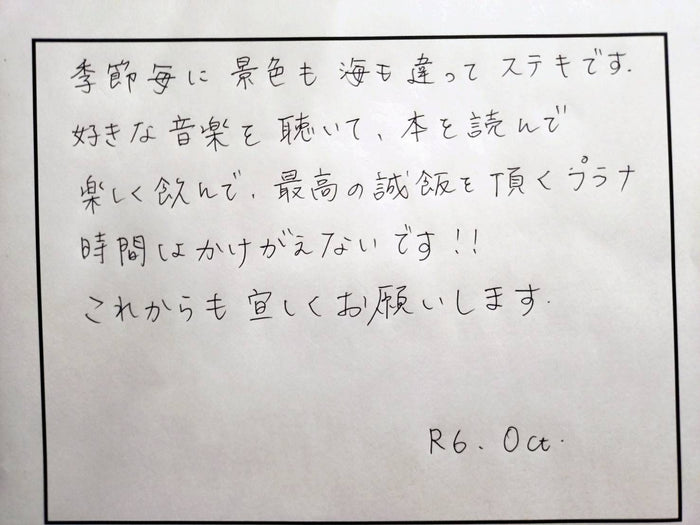 季節毎に 景色も 海も 違って ステキです.
好きな 音楽を 聴いて、本を 読んで
楽しく 飲んで、最高の 誠飯を 頂く プラナ
時間は かけがえないです!!
これからも 宜しく お願いします.
R6. Oct.